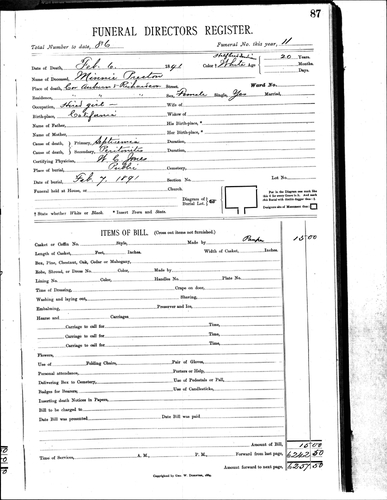 87
FUNERAL DIRECTORS REGISTER.
Total Number to date, 86 Funeral No. this year, 11
Date of Death, Feb 6, 1891 Color † White Age 20 Years. Months. Days.
Name of Deceased, Minnie Preston
Place of Death, Cor Auburn & Richardson Street. Ward No.
Residence, " " " Sex, Female Single, Yes Married,
Occupation, Hired girl — Wife of
Birthplace, California Widow of
Name of Father, His Birthplace,*
Name of Mother, Her Birthplace,*
Cause of death, Primary, Septicemia Duration,
Cause of death, Secondary, Peritonitis Duration,
Certifying Physician, W. C. Jones
Place of burial, Public Cemetery,
Date of burial, Feb 7, 1891 Section No. Lot No.
Funeral held at House, or Church.
Diagram of Burial Lot.
† State whether White or Black. * Insert Town and State.
ITEMS OF BILL. (Cross out items not furnished.)
Casket or Coffin No. Style, Made by Pauper 15.00
Length of Casket, Feet, Inches. Width of Casket, Inches.
Box, Pine, Chestnut, Oak, Cedar or Mahogany,
Robe, Shroud, or Dress No. Color, Made by
Lining No. Color, Handles No. Plate No.
Time of Dressing, Crape on door,
Washing and laying out, Shaving,
Embalming, Preserver and Ice,
Hearse and Carriages.
Carriage to call for Time,
Carriage to call for Time,
Carriage to call for Time,
Flowers,
Use of Folding Chairs, Pair of Gloves,
Personal attendance, Porters or Help,
Delivering Box to Cemetery, Use of Pedestals or Pall,
Badges for Bearers, Use of Candlesticks,
Inserting death Notices in Papers,
Bill to be charged to
Date Bill was presented Date Bill was paid
Amount of Bill, 15.00
Time of Services, A. M., P. M., Forward from last page, 6242.50
Amount forward to next page, 6257.50